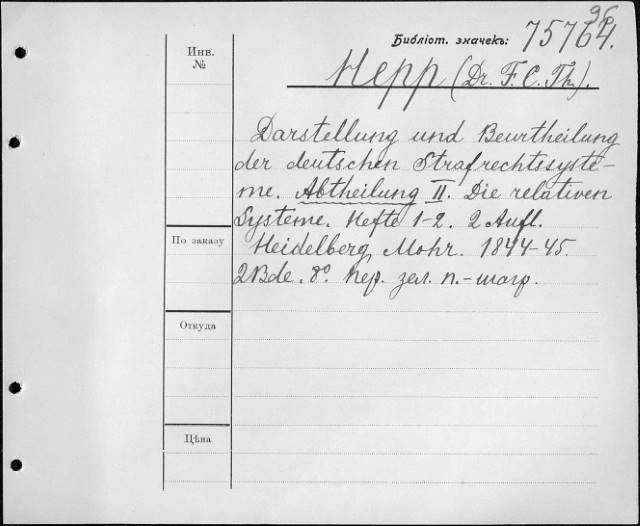 Библіот. значекъ: 75764.
Инв.
№
Hepp (Dr. F. C. Th.).
Darstellung und Beurtheilung
der deutschen Strafrechtssyste-
me. Abtheilung II. Die relativen
Systeme. Hefte 1-2. 2 Aufl.
По заказу
Heidelberg, Mohr. 1844-45.
2 Bde. 8° пер. зел. п.-шагр.
Откуда
Цѣна